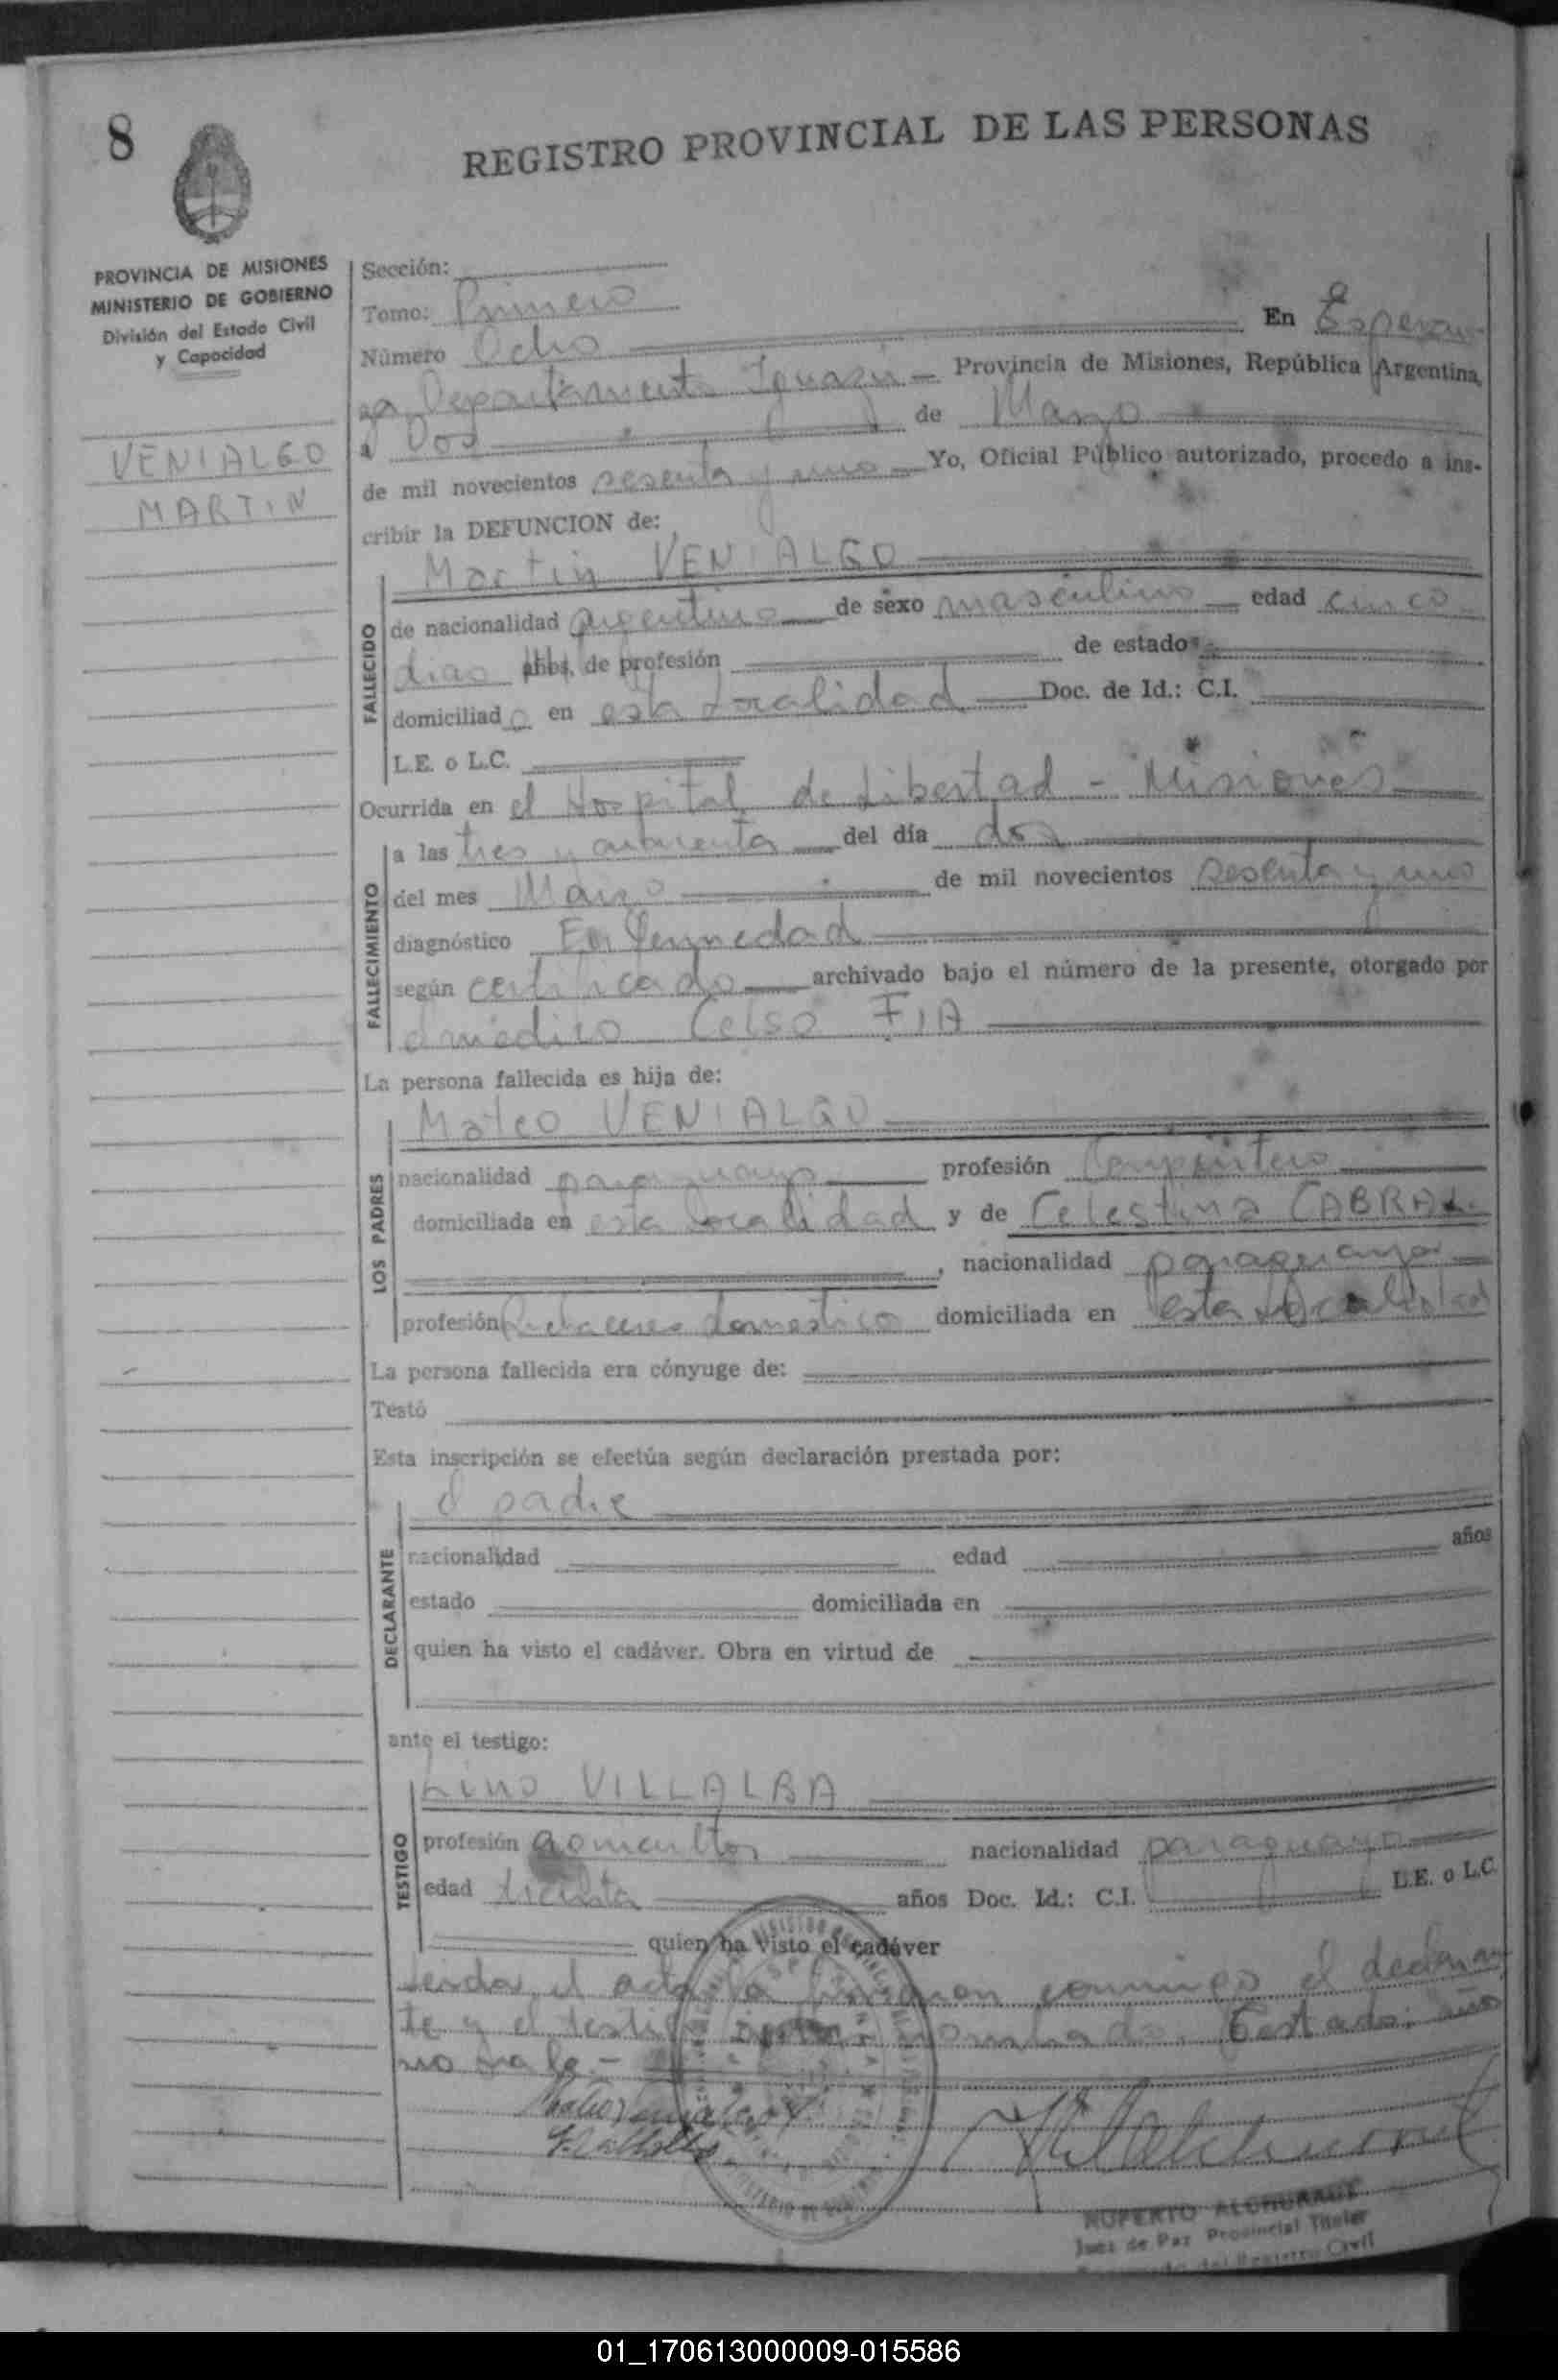 8
REGISTRO PROVINCIAL DE LAS PERSONAS
PROVINCIA DE MISIONES
MINISTERIO DE GOBIERNO
División del Estado Civil
y Capacidad
VENIALGO
MARTIN
Sección:
Tomo: Primero
Número Ocho En Esperan-
za Departamento Iguazú Provincia de Misiones, República Argentina,
a Dos de Marzo
de mil novecientos sesenta y uno Yo, Oficial Público autorizado, procedo a ins-
cribir la DEFUNCION de:
Martin VENIALGO
FALLECIDO
de nacionalidad argentino de sexo masculino edad cinco
dias años, de profesión de estado
domiciliado en esta localidad Doc. de Id.: C.I.
L.E. o L.C.
Ocurrida en el Hospital de Libertad - Misiones
FALLECIMIENTO
a las tres y cuarenta del día dos
del mes Marzo de mil novecientos sesenta y uno
diagnóstico Enfermedad
según certificado archivado bajo el número de la presente, otorgado por
el médico Celso FIA
La persona fallecida es hija de:
Mateo VENIALGO
LOS PADRES
nacionalidad paraguayo profesión Carpintero
domiciliada en esta localidad y de Celestina CABRAL
, nacionalidad paraguaya
profesión Quehaceres domestico domiciliada en esta localidad
La persona fallecida era cónyuge de:
Testó
Esta inscripción se efectúa según declaración prestada por:
el padre
DECLARANTE
nacionalidad edad años
estado domiciliada en
quien ha visto el cadáver. Obra en virtud de
ante el testigo:
Lino VILLALBA
TESTIGO
profesión agricultor nacionalidad paraguayo
edad treinta años Doc. Id.: C.I. L.E. o L.C.
quien ha visto el cadáver
Leida el acta la firmaron conmigo el declaran
te y el testigo nombrado. Testado: años
no vale -
RUPERTO ALCHURRUT
Juez de Paz Provincial Titular
del Registro Civil
01_170613000009-015586